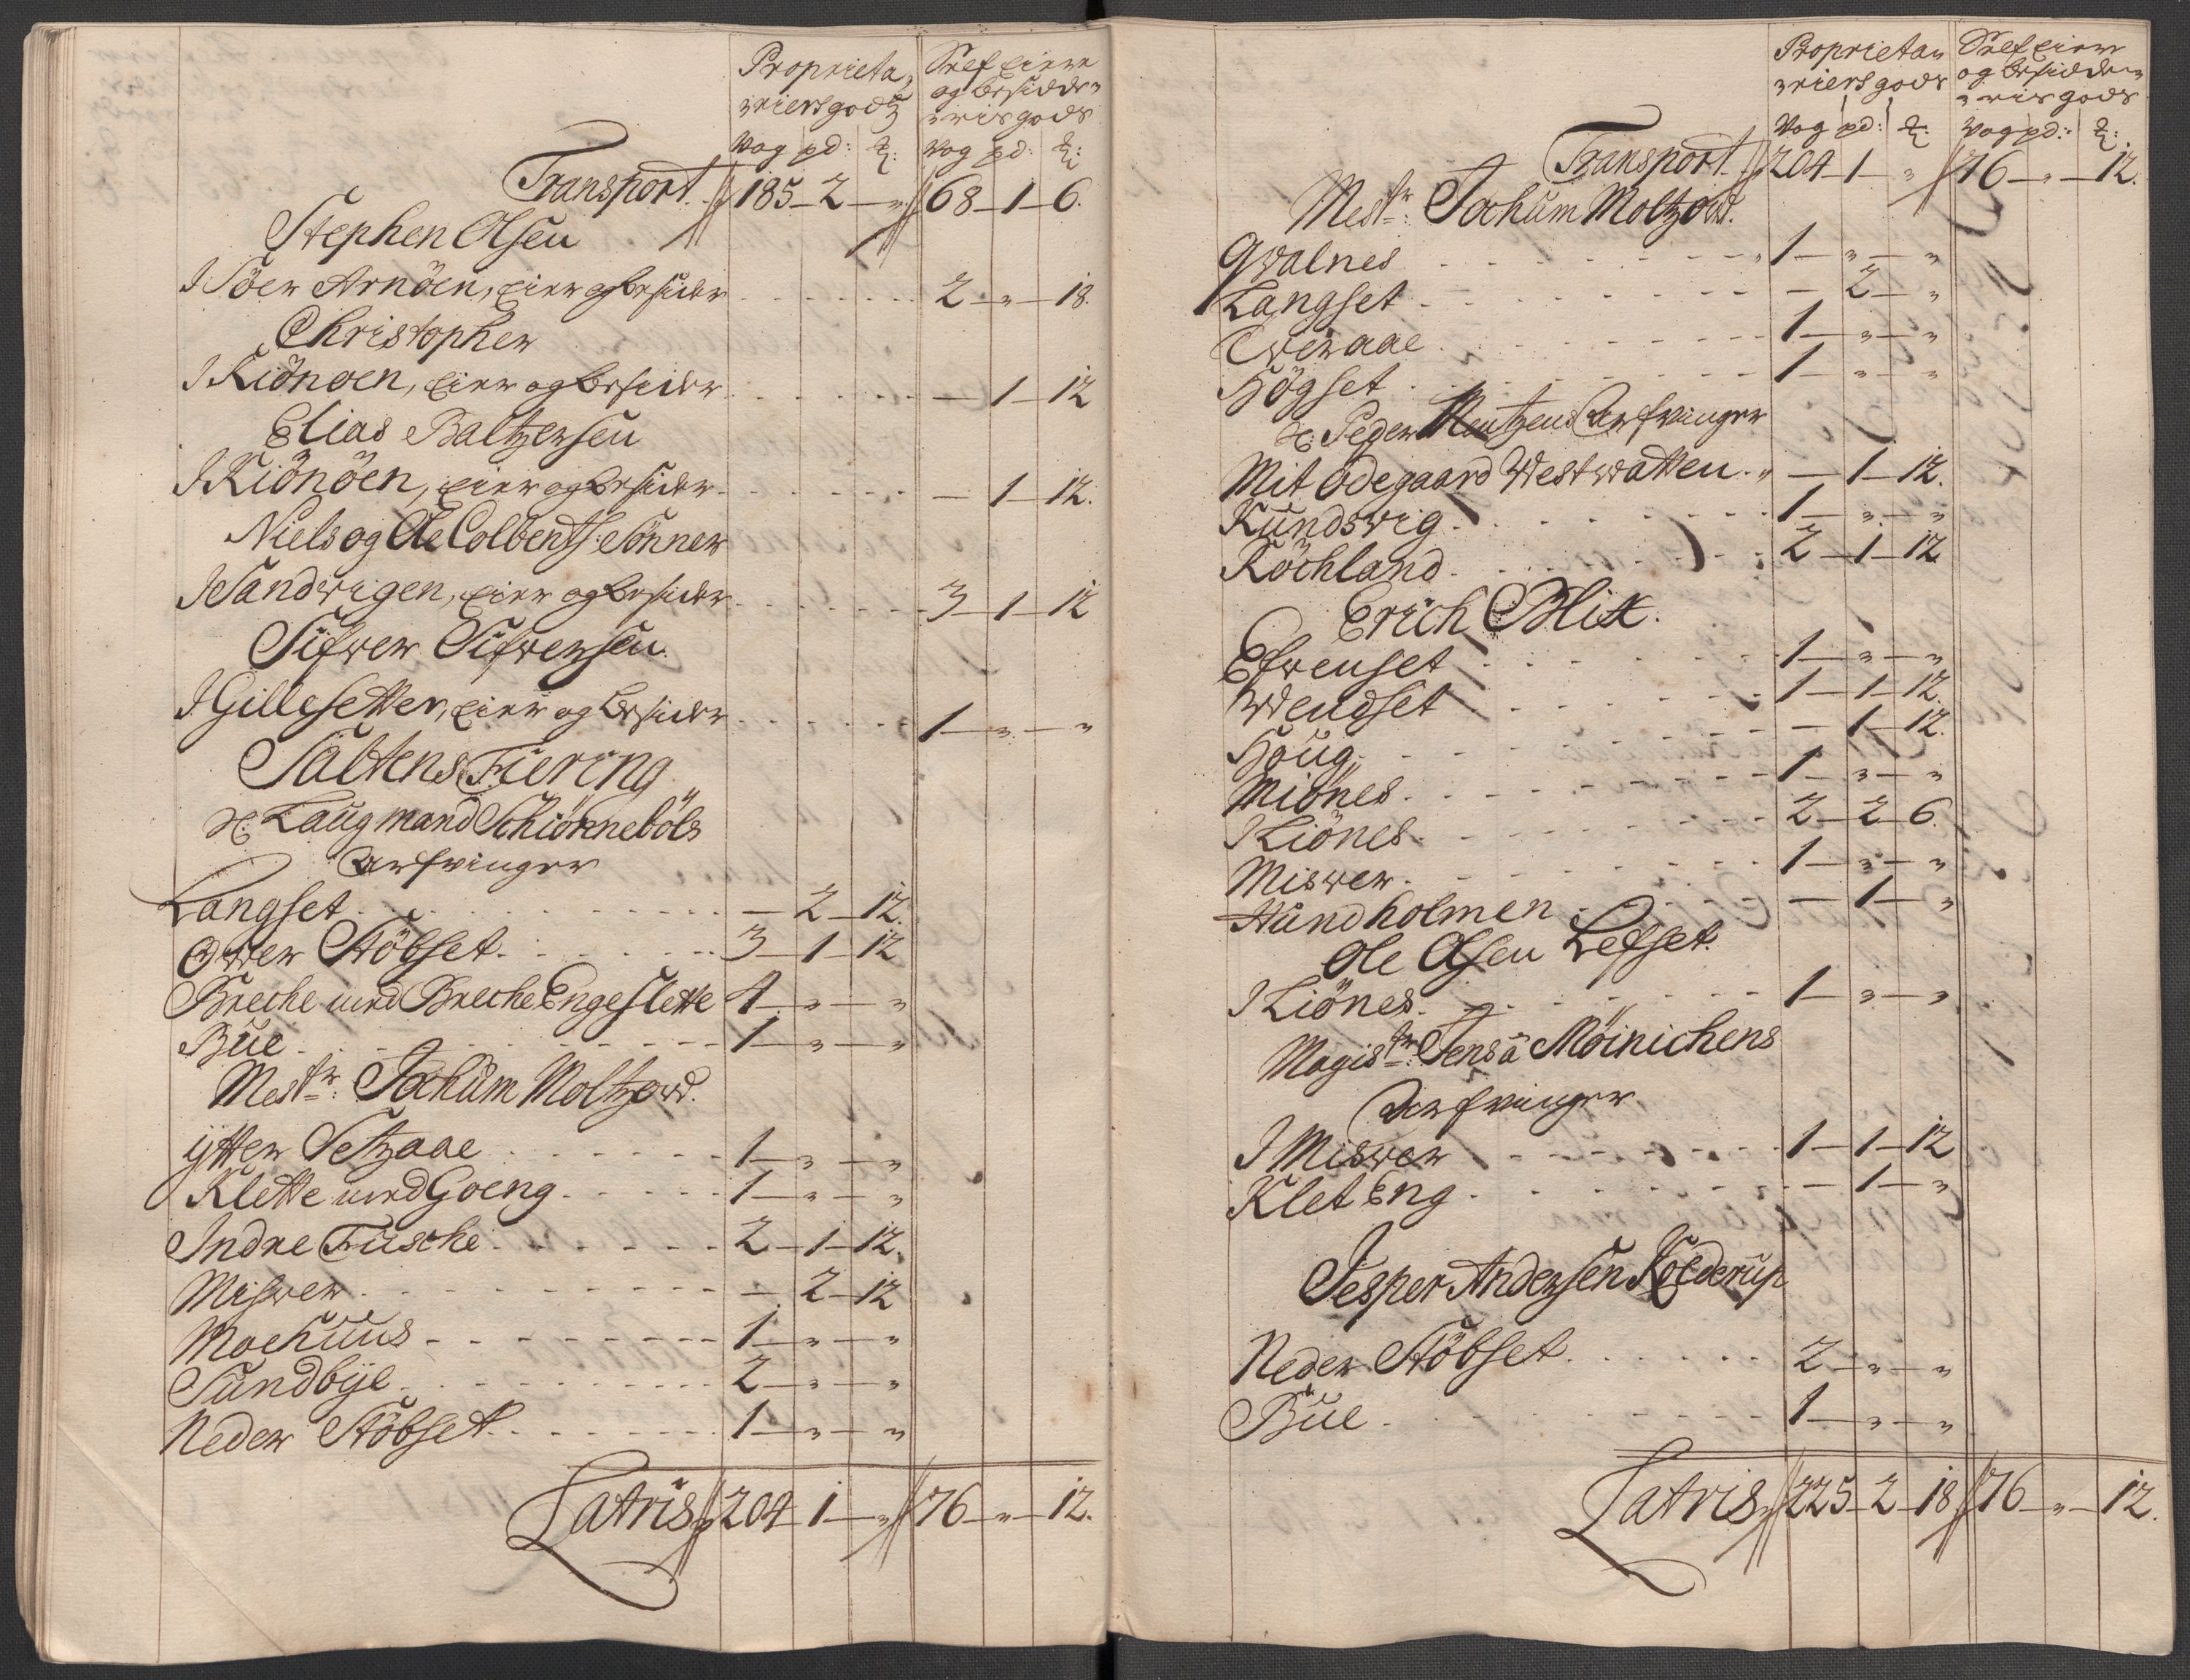 Proprieta-
riersgods
Self Eiere
og besidde-
ris gods
Vog pd: ℔: Vog pd: ℔:
Transport 185 – 2 – „ 68 – 1 – 6.
Stephen Olsen
I Söer Arnöen, eier og besider . . . 2 – „ – 18.
Christopher
I Kiönoen, eier og besider . . . – 1 – 12
Elias Baltzersen
I Kiönöen, eier og besider . . . – 1 – 12.
Niels og Ole Colbents: Sönner
I Sandvigen, eier og besider . . . 3 – 1 – 12
Sifwer Sifwersen
I Gillesetter, eier og besider . . . 1 – „ – „
Saltens Fiering
Sl: Laugmand Schiönnebôls
Arfvinger
Langset . . . – 2 – 12.
Over Stöbset . . . 3 – 1 – 12
Breche med Breche Engeslette 4 – „ – „
Bue . . . 1 – „ – „
Mestr: Jochum Moltzow.
ÿtter Setzaae . . . 1 – „ – „
Klette med Goeng . . . 1 – „ – „
Indre Fusche . . . 2 – 1 – 12.
Miswer . . . – 2 – 12
Moehuus . . . 1 – „ – „
Sundbÿe . . . 2 – „ – „
Neder Stöbset . . . 1 – „ – „
Latris 204 – 1 – „ 76 – „ – 12.
Proprieta-
riersgods
Self Eiere
og besidde-
ris gods
Vog pd: ℔: Vog pd: ℔:
Transport 204 – 1 – „ 76 – „ – 12.
Mestr: Jochum Moltzow.
Qvalnes . . . 1 – „ – „
Langset . . . – 2 – „
Tveraae . . . 1 – „ – „
Högset . . . 1 – „ – „
Sl: Peder Arfvinger
Mit ödegaard Westvatten . – 1 – 12.
Kundsvig . . . 1 – „ – „
Röchland . . . 2 – 1 – 12
Erich Blix.
Efvenset . . . 1 – „ – „
Wendset . . . 1 – 1 – 12.
Houg . . . – 1 – 12.
Miönes . . . 1 – „ – „
I Liönes . . . 2 – 2 – 6.
Miswer . . . 1 – „ – „
Hundholmen . . . – 1 – „
Ole Olsen Lefset.
I Liönes . . . 1 – „ – „
Magistr: Jens â Möinichens
Arfvinger
I Miswer . . . 1 – 1 – 12
Klet Eng . . . – 1 – „
Jesper Andersen Kolderup
Neder Stöbset . . . 2 – „ – „
Bue . . . 1 – „ – „
Latris 225 – 2 – 18 76 – „ – 12.